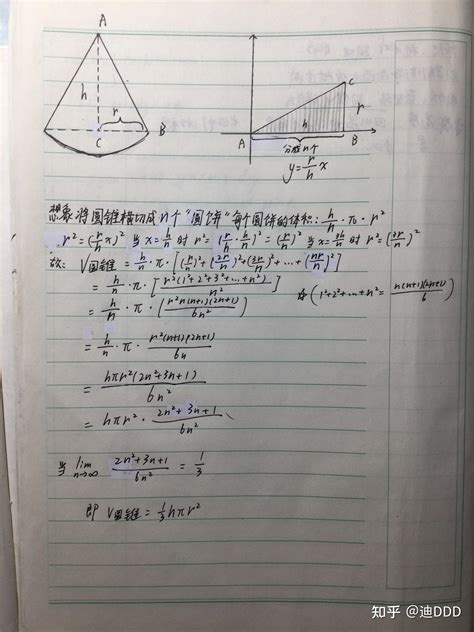 A
h
r
C
B
C
r
h
A
B
分成n个
y=r/h x
想象将圆锥横切成n个"圆饼"每个圆饼的体积:h/n·π·r²
r²=(r/h x)² 当x=h/n时 r²=(r/h·h/n)²=(r/n)² 当x=2h/n时 r²=(2r/n)²
故: V圆锥=h/n·π·[(r/n)²+(2r/n)²+(3r/n)²+…+(nr/n)²]
=h/n·π·[r²(1²+2²+3²+…+n²)/n²]
☆(1²+2²+…+n²=n(n+1)(2n+1)/6)
=h/n·π·[r²n(n+1)(2n+1)/6n²]
=h/n·π·r²(n+1)(2n+1)/6n
=hπr²(2n²+3n+1)/6n²
=hπr²·2n²+3n+1/6n²
当 lim n→∞ 2n²+3n+1/6n² = 1/3
即 V圆锥=1/3hπr²
知乎 @迪DDD